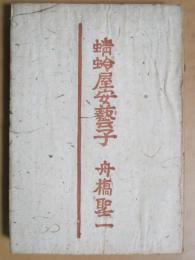 蜻蛉屋安藝子
舟橋聖一